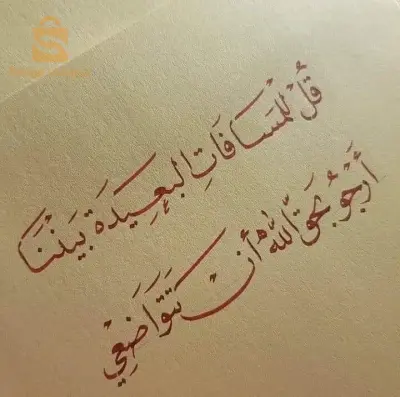 قُلْ لِلْمَسَافَاتِ الْبَعِيدَةِ بَيْنَنَا
أَرْجُو بِحَقِّ اللَّهِ أَنْ تَتَوَاضَعِي